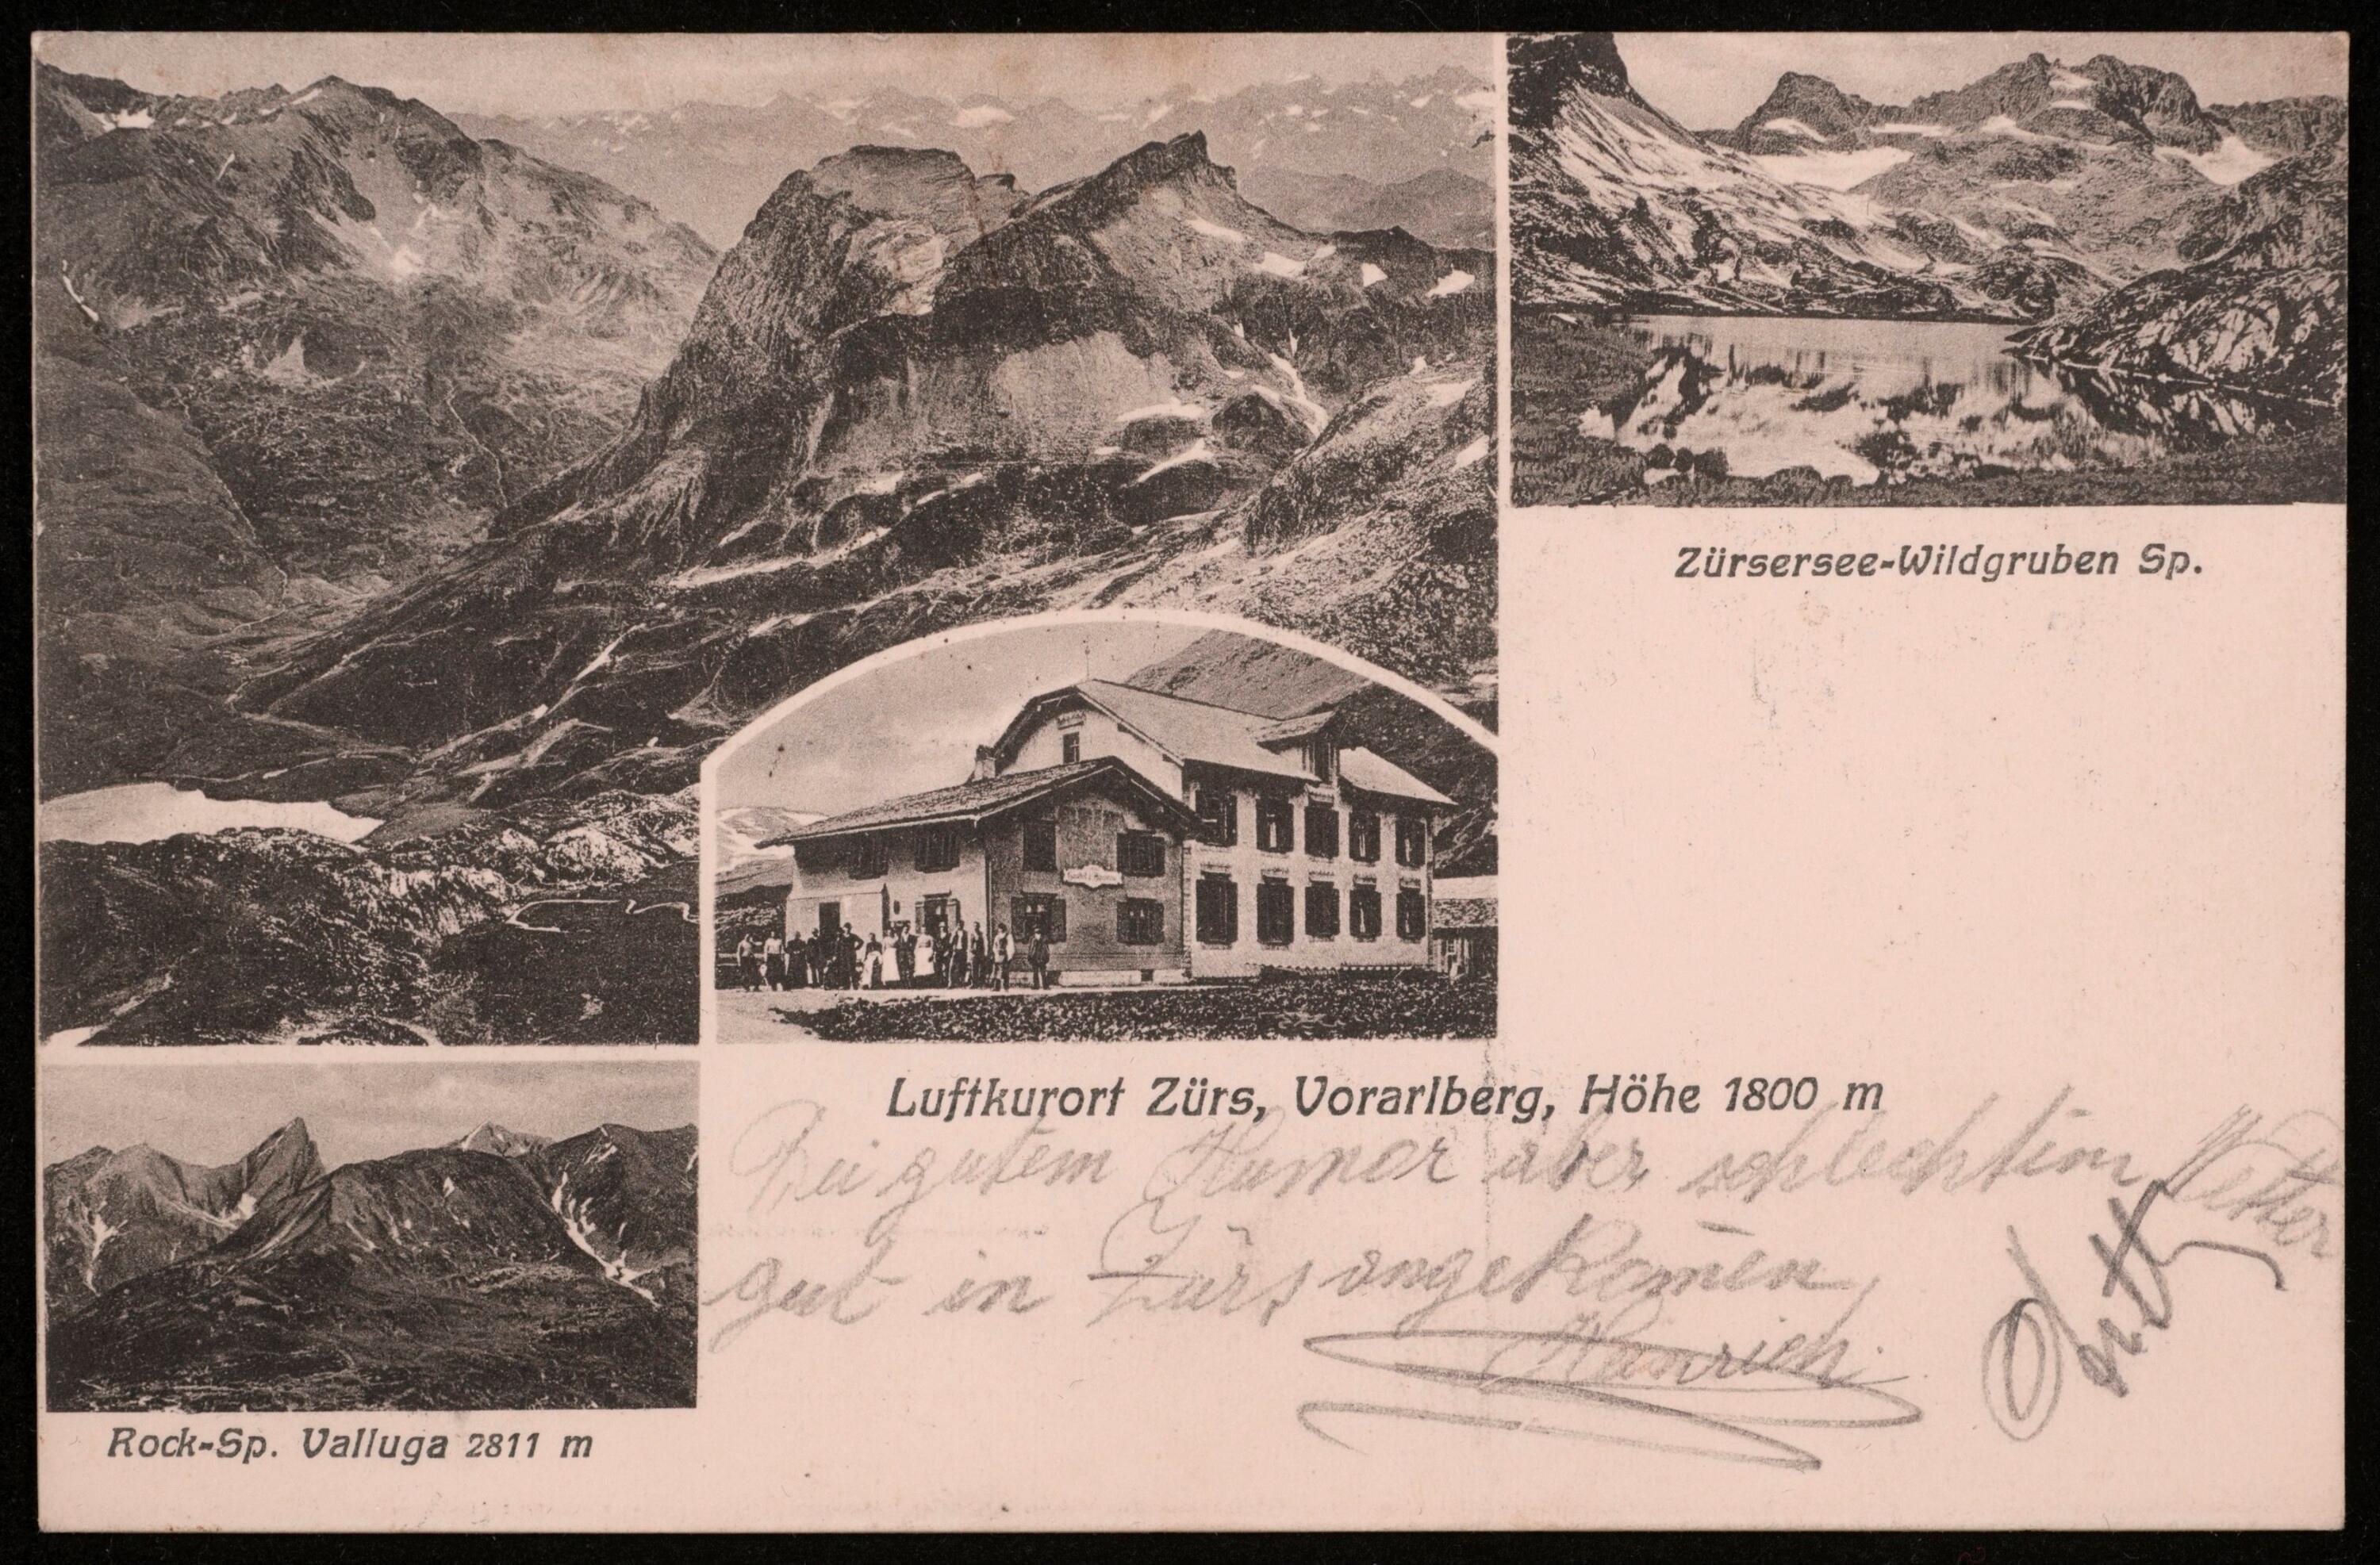 Zürsersee-Wildgruben Sp.
Luftkurort Zürs, Vorarlberg, Höhe 1800 m
Bei gutem Humor aber schlechtem Wetter
gut in Zürs angekom̄en
Heinrich
Rock-Sp. Valluga 2811 m